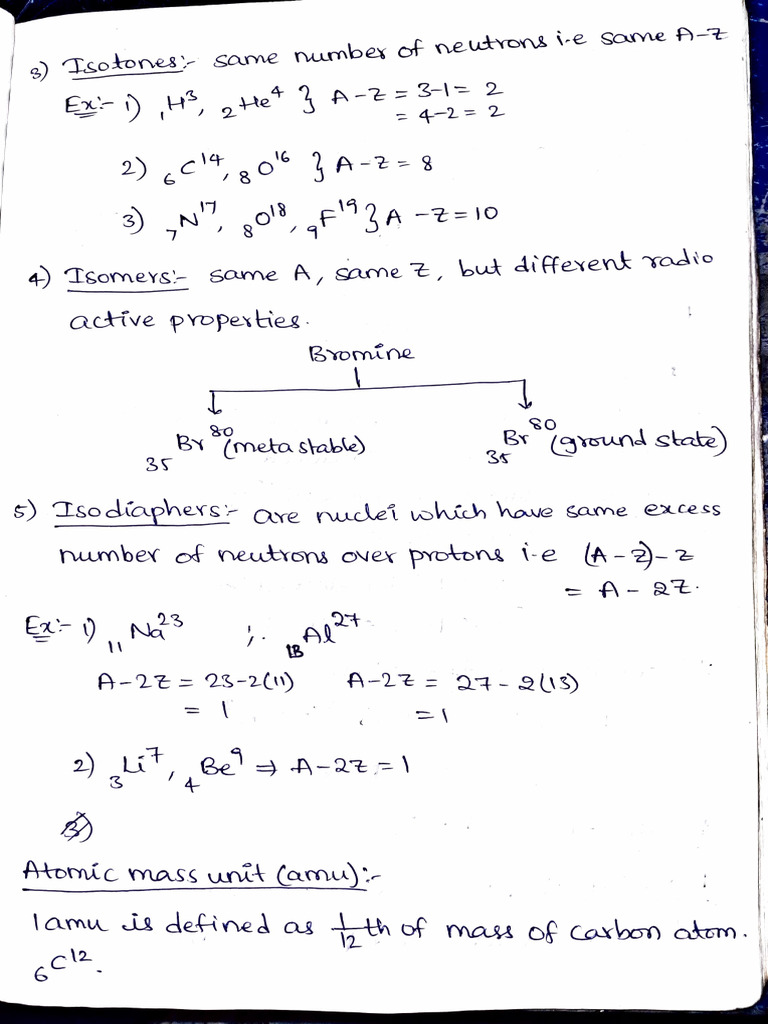 3) Isotones:- same number of neutrons i.e same A-Z
Ex:- 1) ₁H³, ₂He⁴ } A-Z = 3-1 = 2
= 4-2 = 2
2) ₆C¹⁴, ₈O¹⁶ } A-Z = 8
3) ₇N¹⁷, ₈O¹⁸, ₉F¹⁹ } A-Z = 10
4) Isomers:- same A, same Z, but different radio
active properties.
Bromine
₃₅Br⁸⁰ (meta stable) ₃₅Br⁸⁰ (ground state)
5) Isodiaphers:- are nuclei which have same excess
number of neutrons over protons i.e (A-Z)-Z
= A-2Z.
Ex:- 1) ₁₁Na²³ ;. ₁₃Al²⁷
A-2Z = 23-2(11) A-2Z = 27-2(13)
= 1 = 1
2) ₃Li⁷, ₄Be⁹ ⇒ A-2Z = 1
Atomic mass unit (amu):-
1amu is defined as 1/12 th of mass of carbon atom.
₆C¹².